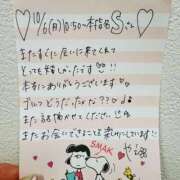 ♡10/6(月)10:50〜本指名Sさん♡
またすぐに会いに来てくれて
とっても嬉しかったです!!
本当にありがとうございます
ゴルフどうだったかな??♪
また話聞かせてください
またお会いできること楽しみにしています!!
SMAK